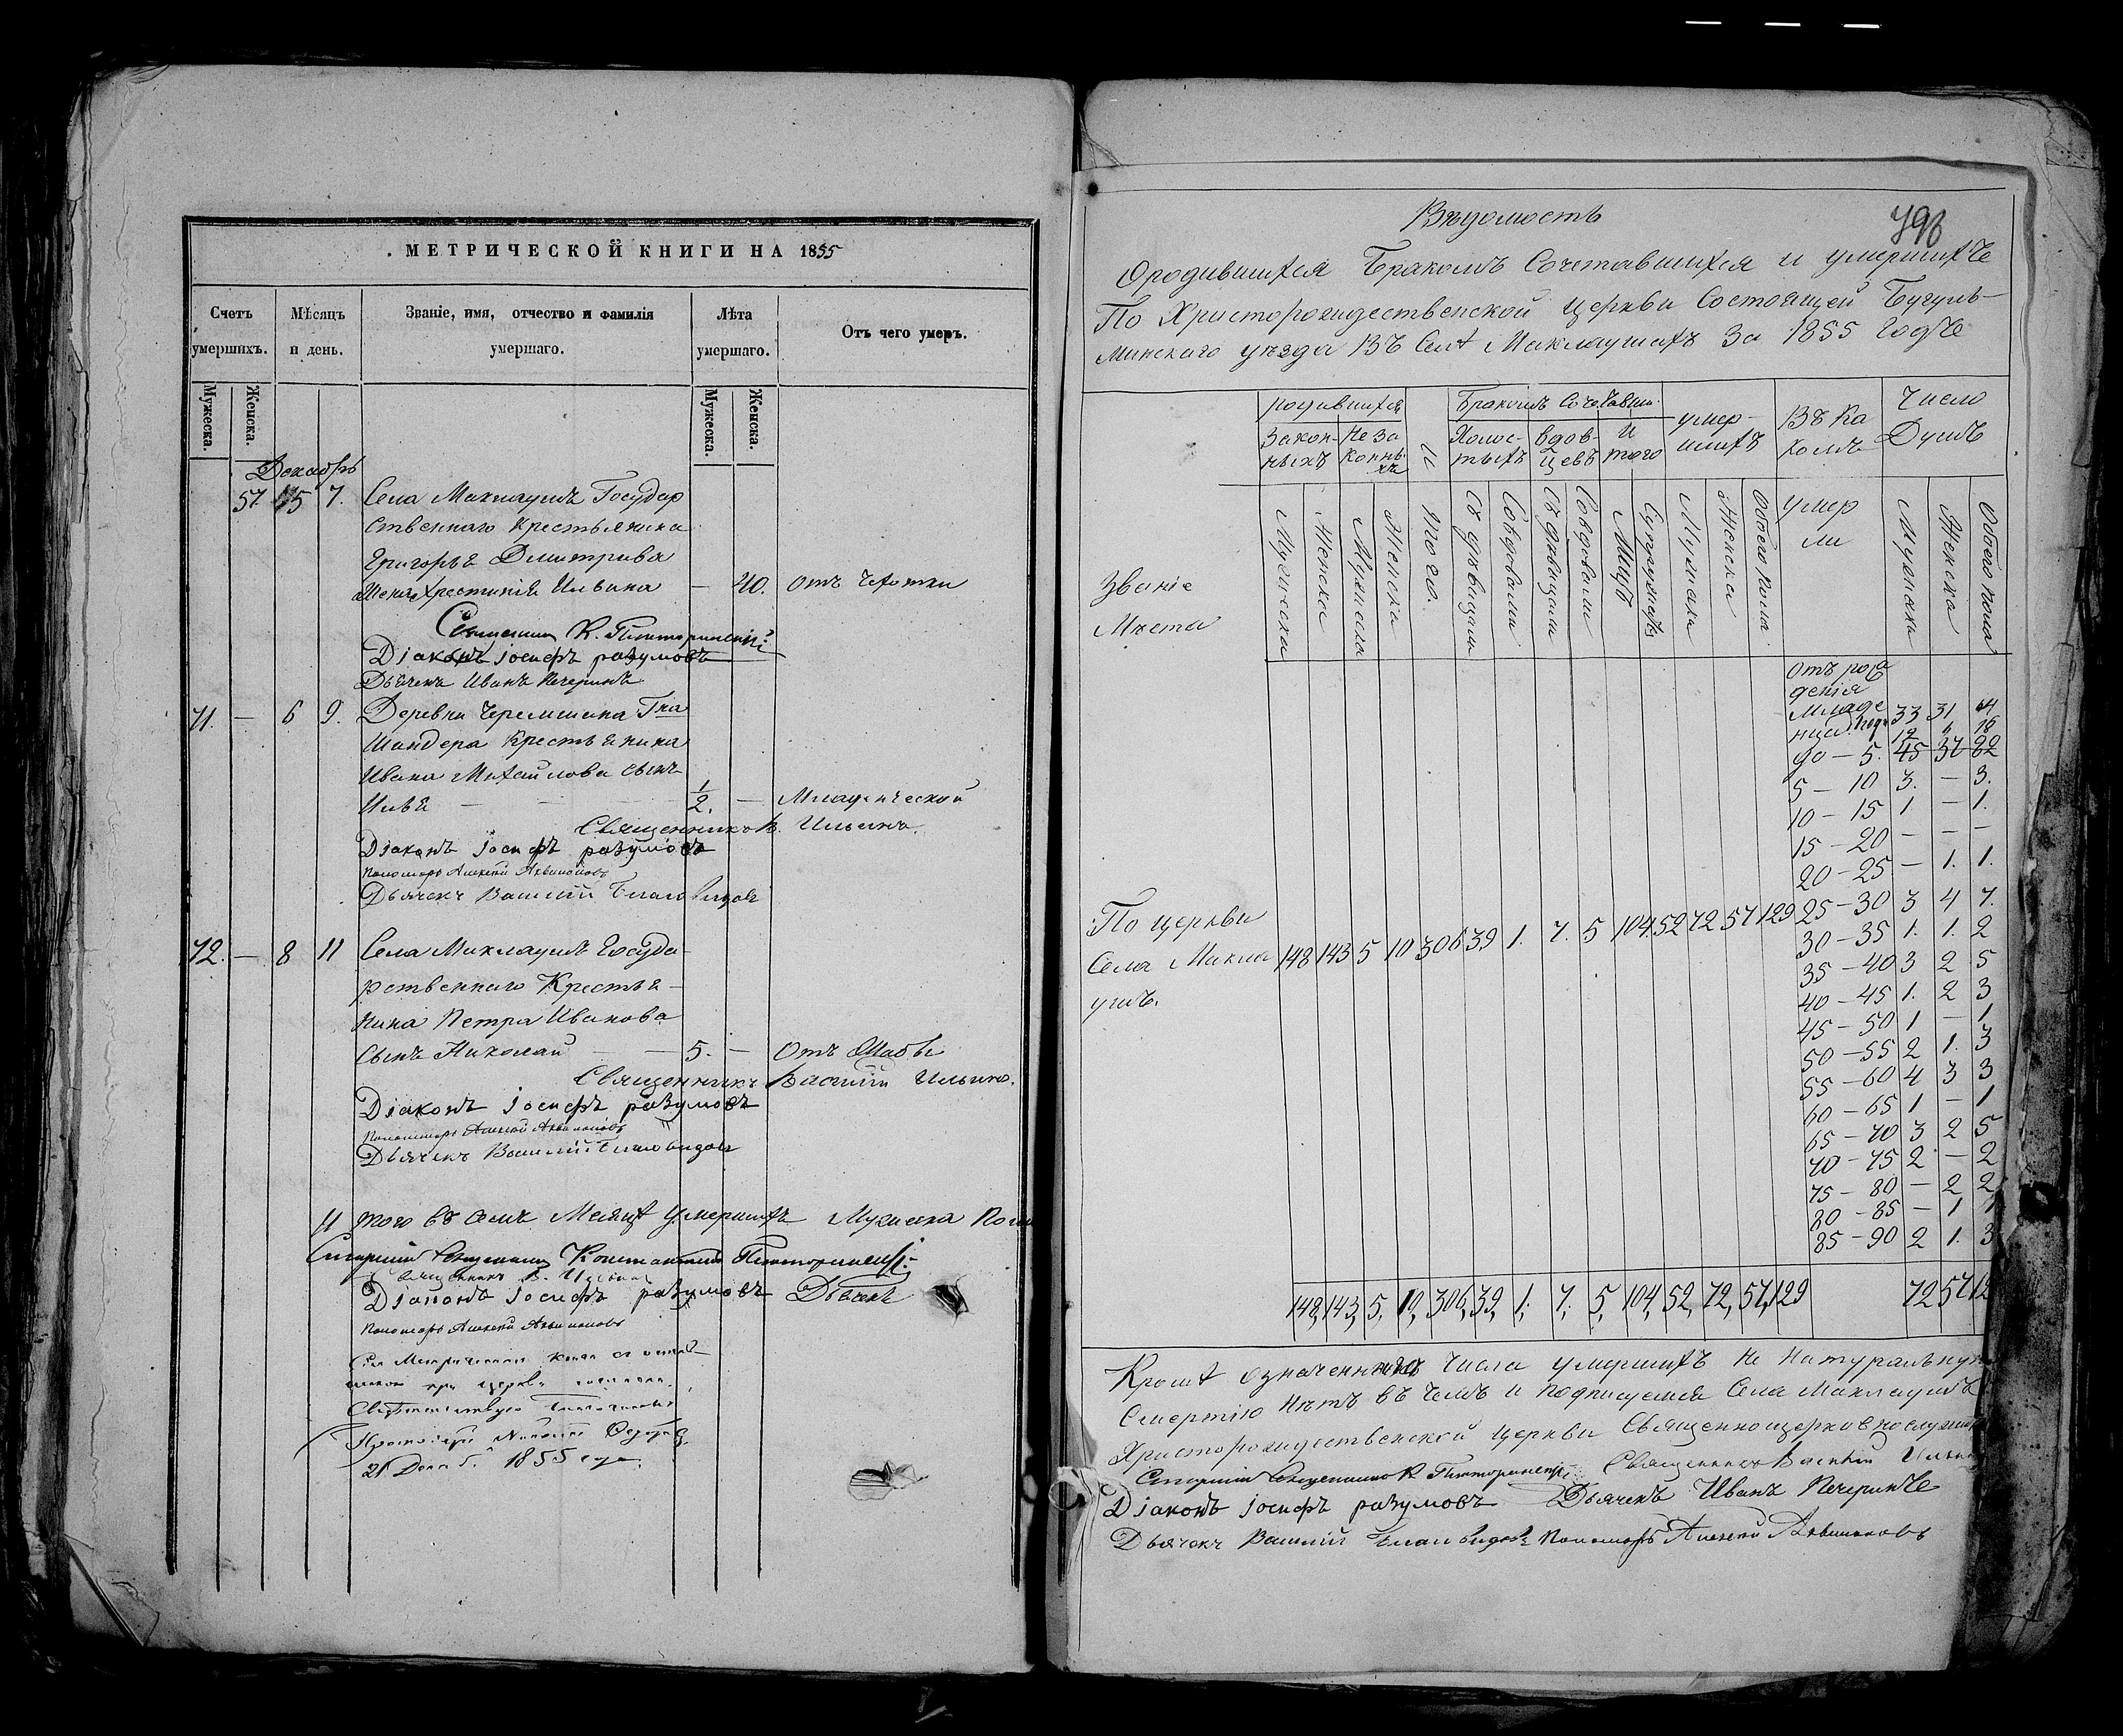 МЕТРИЧЕСКОЙ КНИГИ НА 1855
Счетъ умершихъ.
Мѣсяцъ и день.
Званіе, имя, отчество и фамилія умершаго.
Лѣта умершаго.
Отъ чего умеръ.
Мужеска. Женска.
Мужеска. Женска.
Декабрь
57. 5 7. Села Маклаушъ Государ
ственнаго Крестьянина
Григорья Дмитрива
жена Христинія Ильина — 40. отъ чахотки
Діаконъ Іосифъ разумовъ
Дьячекъ Иванъ Печеринъ
71. — 6 9. Деревни Черемшана
Шандера Крестьянина
Ивана Михайлова сынъ
Илья — 1/2. — Младенческой
Священникъ В. Ильинъ.
Діаконъ Іосифъ разумовъ
Пономарь Алексей
Дьячекъ Василій Благовидовъ
72. — 8 11 Села Маклаушъ Госуда
рственнаго Крестья
нина Петра Иванова
Сынъ Николай — 5. — Отъ
Священникъ Василій Ильинъ.
Діаконъ Іосифъ разумовъ
Пономарь Алексей
Дьячекъ Василій Благовидовъ
И того въ семъ Месяцѣ умершихъ Мужеска
Старший Священникъ Константинъ
Священникъ В. Ильинъ
Діаконъ Іосифъ разумовъ
Пономарь Алексей
21 Декаб. 1855 года.
Вѣдомость
798
О родившихся Бракомъ Сочетавшихся и умершихъ
По Христорождественской церкви Состоящей Бугуль-
минскаго уѣзда Въ Селѣ Маклаушахъ За 1855 Годъ
Званіе Мѣста
родившихся
Закон-ныхъ
Не законныхъ
Итого.
Бракомъ Сочетавши.
Холос-тыхъ
вдов-цевъ
И того
умер-шихъ
Въ Ка комъ
умер ли
Число Душъ
Мужеска Женска Мужеска Женска
Съ дѣвицами Со вдовами Съ дѣвицами Со вдовами
Мужеска Женска Обоего пола
Мужеска Женска Обоего пола
Отъ рож
денія
Младе 33 31
до — 5. 45 37 82
5 — 10 3. — 3.
10 — 15 1 — 1.
15 — 20 — — —
20 — 25 — 1. 1.
25 — 30 3 4 7.
30 — 35 1. 1. 2
35 — 40 3 2 5
40 — 45 1. 2 3
45 — 50 1 — 1
50 — 55 2 1. 3
55 — 60 4 3 3
60 — 65 1 — 1
65 — 70 3 2 5
70 — 75 2 — 2
75 — 80 — 2 2
80 — 85 — 1 1
85 — 90 2 1. 3
По церкви
Села Макла 148 143 5 10 306 39 1. 7. 5 104 52 72 57 129
ушъ.
148, 143, 5, 10, 306, 39, 1, 7, 5, 104, 52, 72, 57, 129 72 57
Кромѣ означеннаго числа умершихъ Не Натуральную
Смертію Нѣтъ въ чемъ и подписуемся Села Маклаушъ
Христорождественской церкви Священноцерковнослужит
Старший Священникъ К. Священникъ Василій Ильинъ
Діаконъ Іосифъ разумовъ Дьячекъ Иванъ Печеринъ
Дьячекъ Василій Благовидовъ Пономарь Алексей